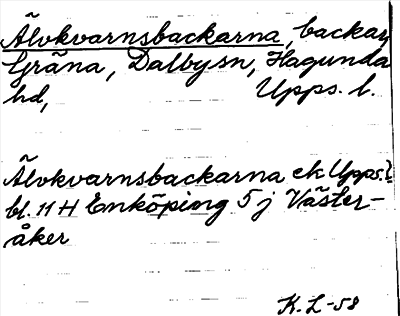 Älvkvarnsbackarna, backar
Gräna, Dalbysn, Hagunda
hd, Upps. l.
Älvkvarnsbackarna ek Upps. l
bl. 11 H Enköping 5 j Väster-
åker
K.L-58